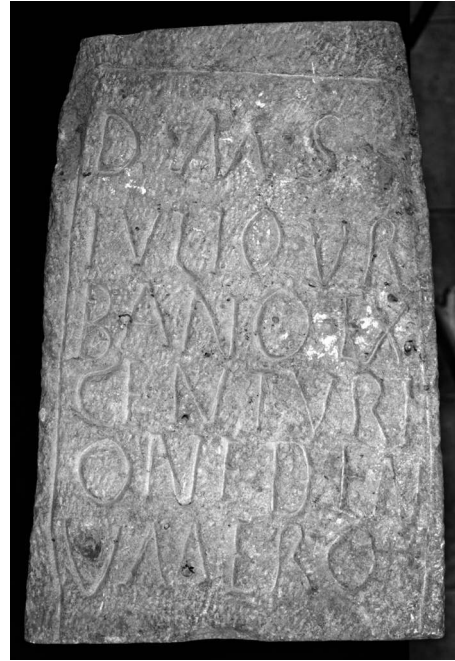 D M S
IVLIO VR
BANO EX
CENTVRI
ONE D IN
VMERO